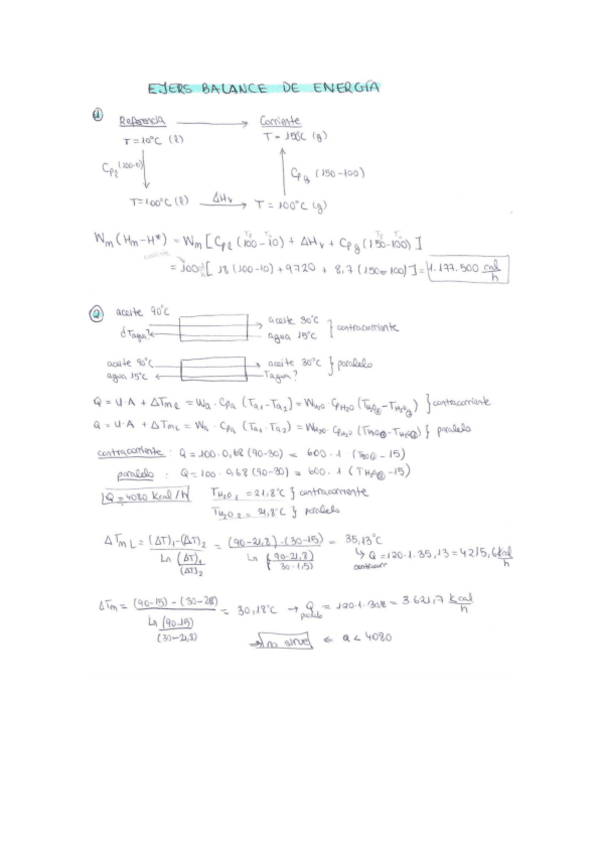 EJERS BALANCE DE ENERGÍA
① Referencia → Corriente
T = 10°C (l) T = 150°C (g)
Cpl (100-10) Cpg (150-100)
T=100°C (l) ΔHv → T = 100°C (g)
Wm (Hm - H*) = Wm [ Cpl (100-10) + ΔHv + Cpg (150-100) ]
= 100 [ 18 (100-10) + 9720 + 8,7 (150-100) ] = 1.177.500 cal/h
② aceite 90°C aceite 30°C } contracorriente
d Tagua? agua 15°C
aceite 90°C aceite 30°C } paralelo
agua 15°C Tagua?
Q = U·A + ΔTmL = Wa · Cpa (Ta1 - Ta2) = WH2O · CpH2O (TH2O - TH2O) } contracorriente
Q = U·A + ΔTmL = Wa · Cpa (Ta1 - Ta2) = WH2O · CpH2O (TH2O - TH2O) } paralelo
contracorriente : Q = 100 · 0,68 (90-30) = 600 · 1 ( - 15)
paralelo : Q = 100 · 0,68 (90-30) = 600 · 1 (TH2O - 15)
Q = 4080 Kcal/h TH2O 1 = 21,8°C } contracorriente
TH2O 2 = 21,8°C } paralelo
ΔTmL = (ΔT)1 - (ΔT)2 / Ln (ΔT)1/(ΔT)2 = (90-21,8) - (30-15) / Ln (90-21,8 / 30-15) = 35,13°C
↳ Q = 120·1·35,13 = 4215,6 kcal/h
contracorr
ΔTm = (90-15) - (30-218) / Ln (90-15)/(30-21,8) = 30,18°C → Q paralelo = 120·1·30,8 = 3621,7 kcal/h
→ no sirve ← Q < 4080